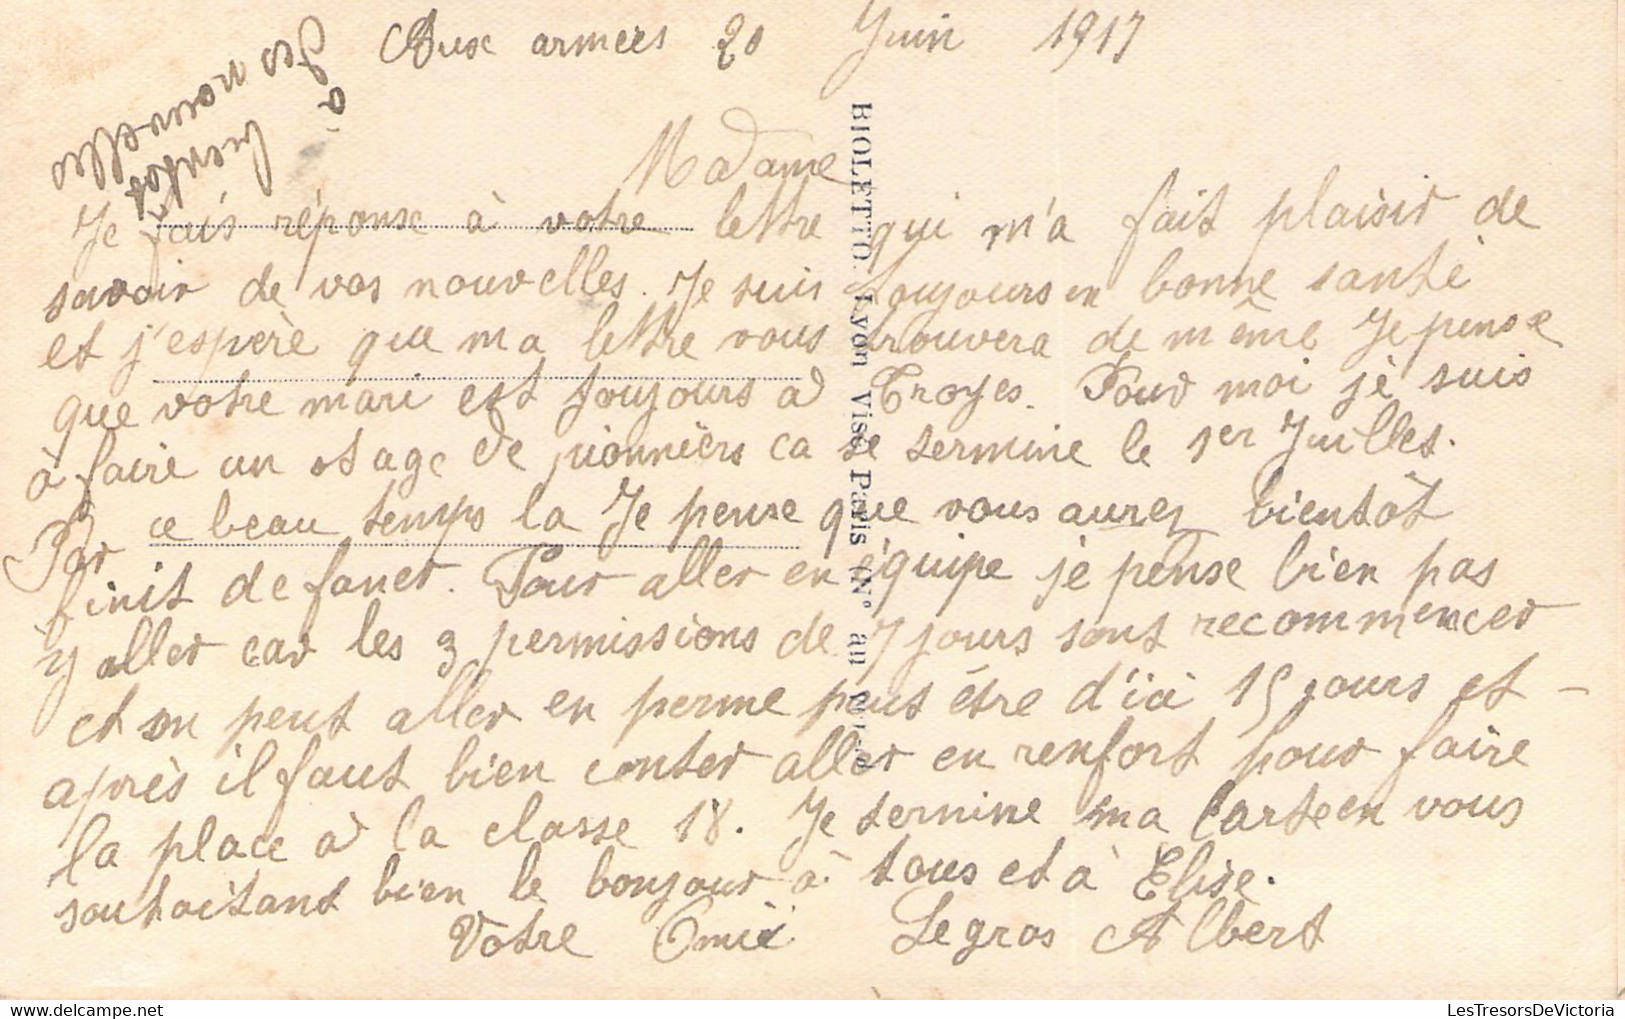 Aux armées 20 Juin 1917
à bientôt
des nouvelles
Madame
Je fais réponse à votre lettre qui m'a fait plaisir de
savoir de vos nouvelles. Je suis toujours en bonne santé
et j'espère que ma lettre vous trouvera de même Je pense
que votre mari est toujours a Troyes. Pour moi je suis
à faire un stage de pionniers ca se termine le 1er Juillet.
Par ce beau temps la Je pense que vous aurez bientôt
finit de faner. Pour aller en équipe je pense bien pas
y aller car les 3 permissions de 7 jours sont recommencer
et on peut aller en perme peut être d'ici 15 jours et -
après il faut bien conter aller en renfort pour faire
la place a la classe 18. Je termine ma carte en vous
souhaitant bien le bonjour à tous et à Elise.
Votre Ami Legros Albert
BIOLETTO. Lyon Visé Paris (N° au
LesTresorsDeVictoria.com